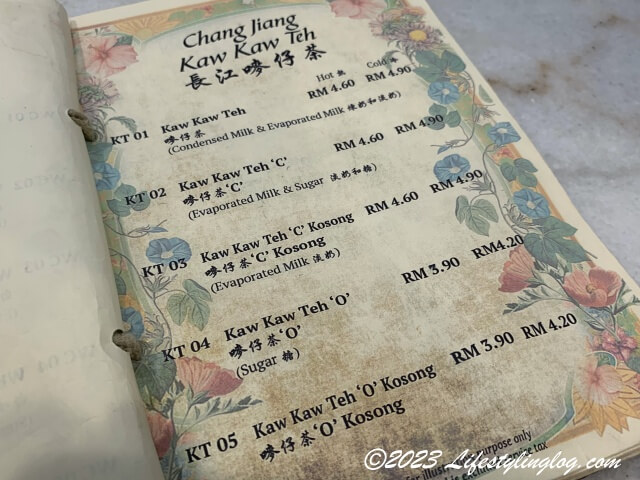 Chang Jiang
Kaw Kaw Teh
長江嘜仔茶
Hot 熱 Cold 冷
KT 01 Kaw Kaw Teh RM 4.60 RM 4.90
嘜仔茶
(Condensed Milk & Evaporated Milk 煉奶和淡奶)
KT 02 Kaw Kaw Teh 'C' RM 4.60 RM 4.90
嘜仔茶'C'
(Evaporated Milk & Sugar 淡奶和糖)
KT 03 Kaw Kaw Teh 'C' Kosong RM 4.60 RM 4.90
嘜仔茶'C' Kosong
(Evaporated Milk 淡奶)
KT 04 Kaw Kaw Teh 'O' RM 3.90 RM4.20
嘜仔茶'O'
(Sugar 糖)
KT 05 Kaw Kaw Teh 'O' Kosong RM 3.90 RM 4.20
嘜仔茶'O' Kosong
purpose only
tax
©2023 Lifestylinglog.com